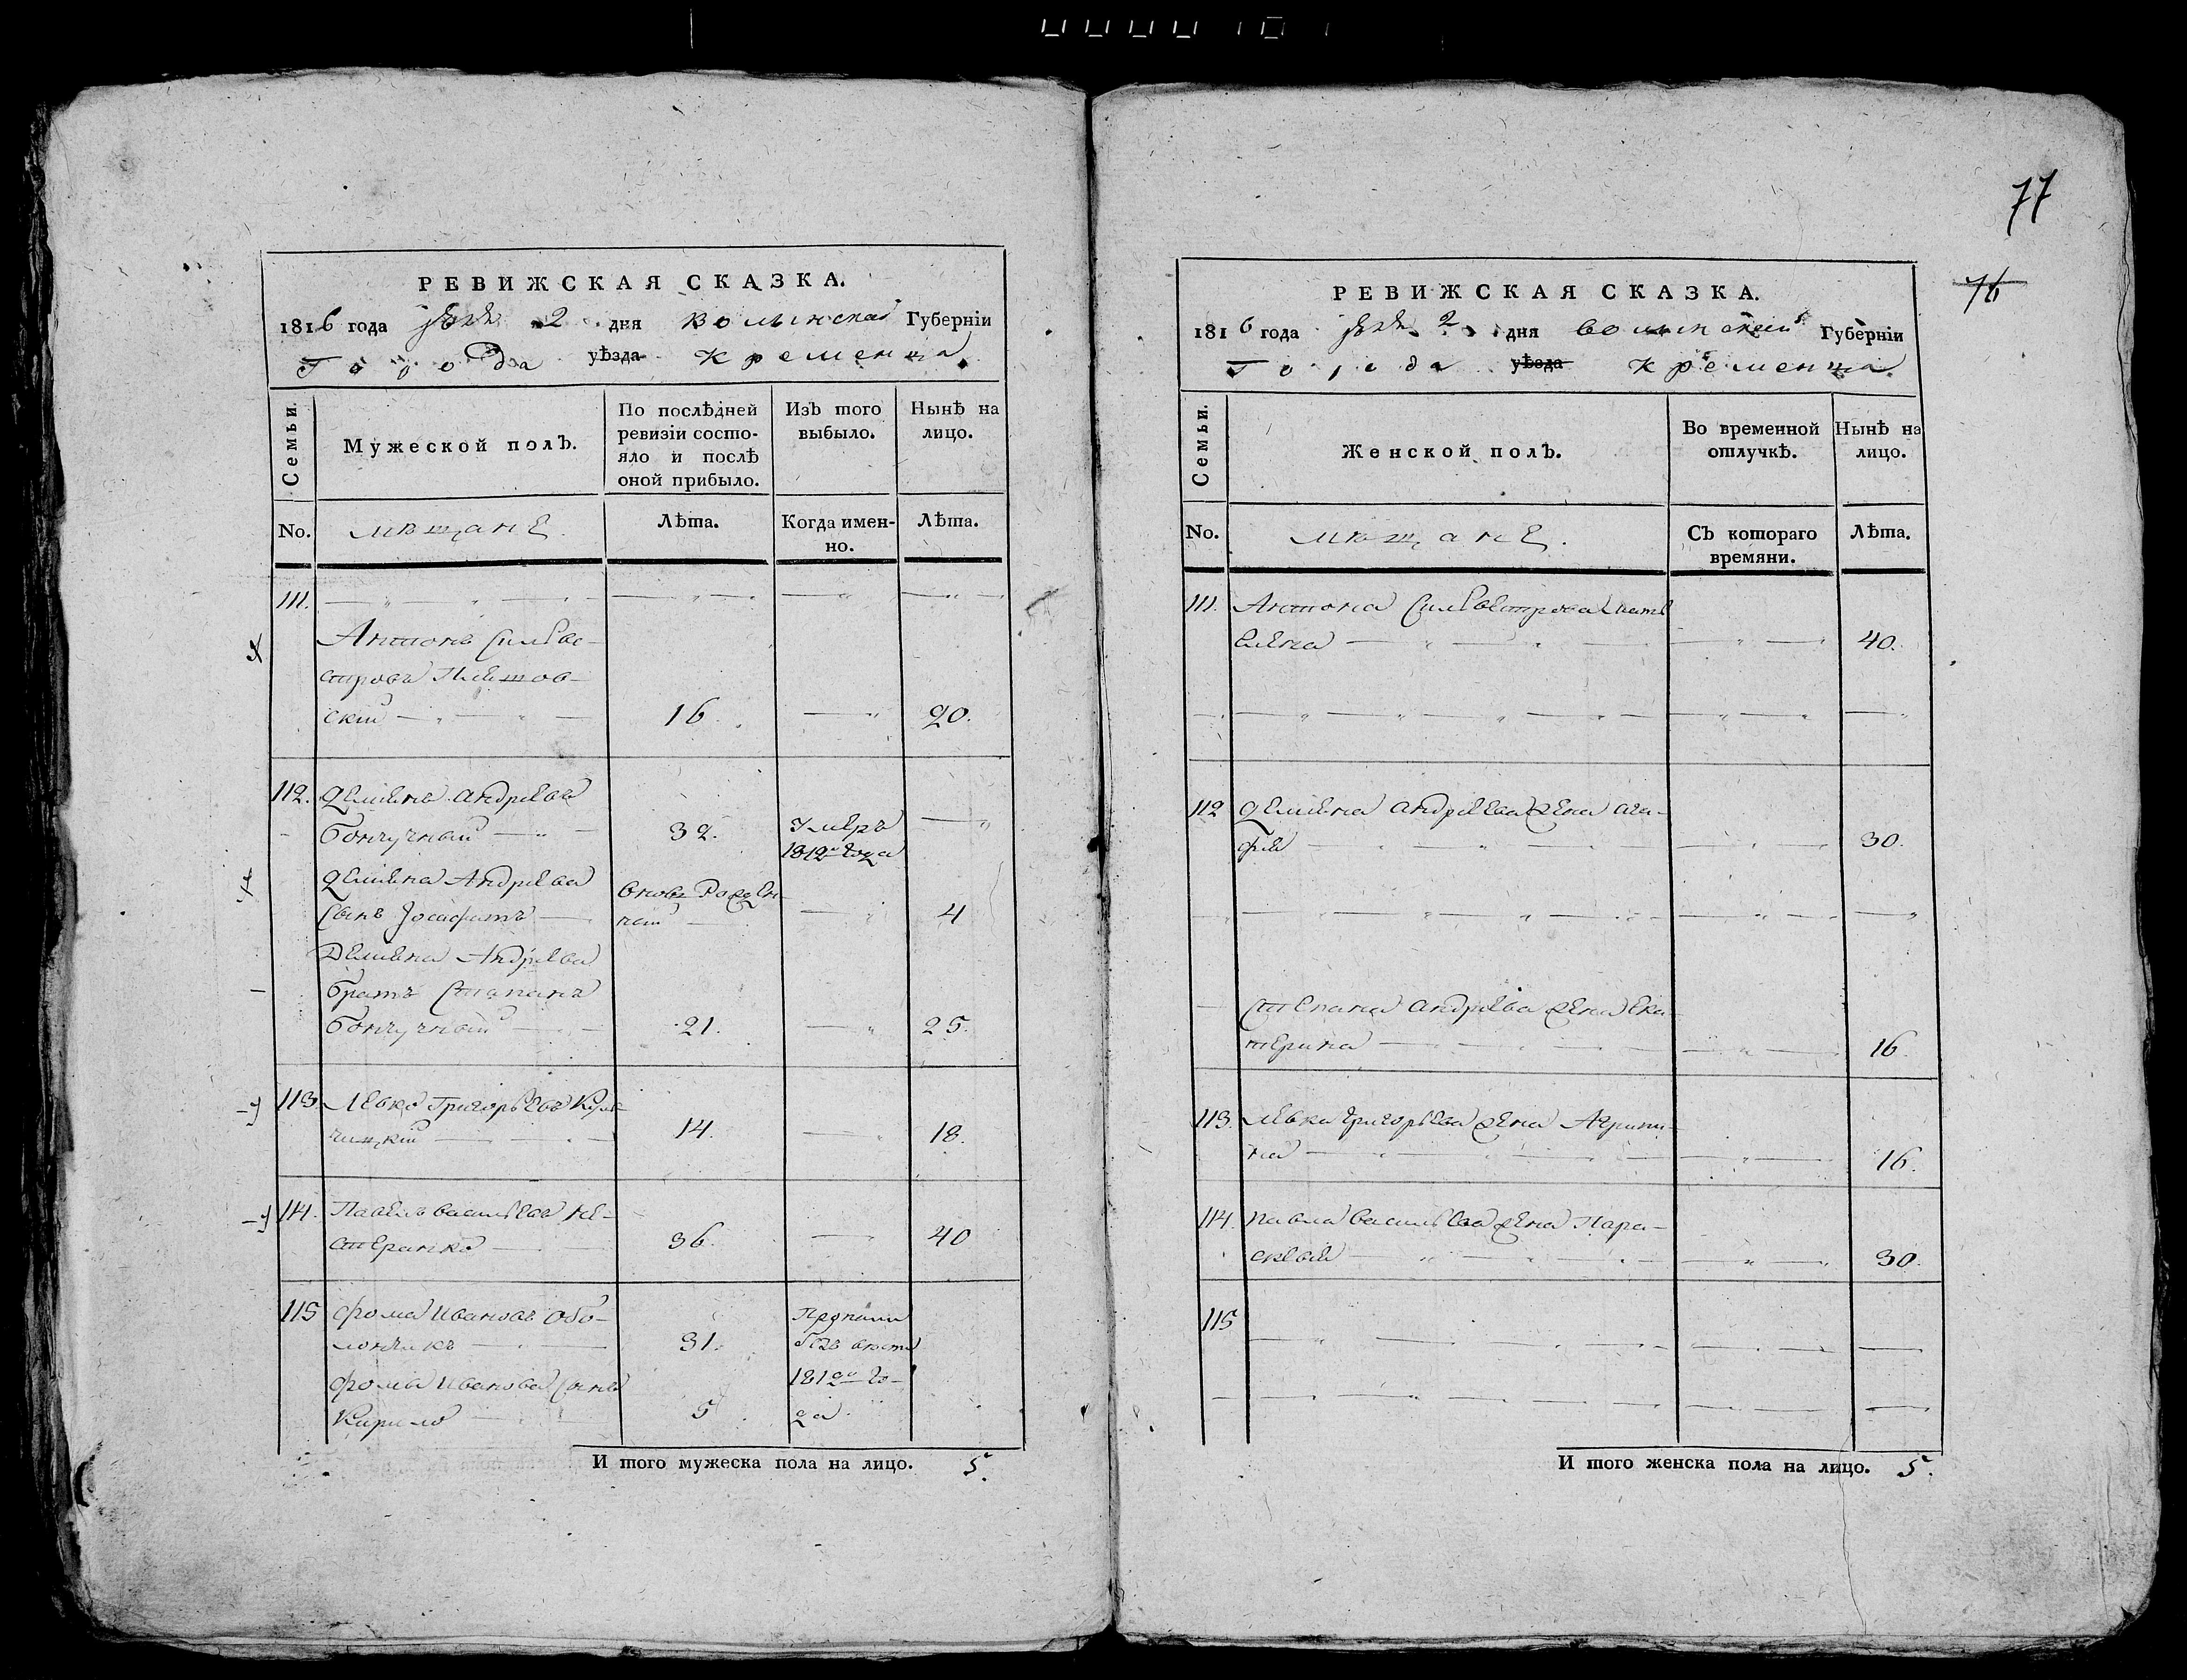 РЕВИЖСКАЯ СКАЗКА.
1816 года 2 дня Волынской Губерніи
Города уѣзда Кременца
Семьи.
Мужеской полъ.
По послѣдней ревизіи состояло и послѣ оной прибыло.
Изъ того выбыло.
Нынѣ на лицо.
No.
мѣщане
Лѣта.
Когда именно.
Лѣта.
111.
Антонъ Сильве-
стровъ
скій 16. 20.
112. Демянъ Андрѣевъ
32. Умеръ
1812го года
Демяна Андрѣева вновь рожден-
Сынъ Іосафатъ ной 4
Демяна Андрѣева
братъ Степанъ
21. 25.
113. Левко Григорьевъ
14. 18.
114. Павелъ Васильевъ Не-
стеранко 36. 40
115 Фома Ивановъ Обо-
лончикъ 31.
Фомы Иванова Сынъ 181 го-
Кирило 5 да
И того мужеска пола на лицо. 5.
77
76
РЕВИЖСКАЯ СКАЗКА.
1816 года 2 дня Волынской Губерніи
Города уѣзда Кременца
Семьи.
Женской полъ.
Во временной отлучкѣ.
Нынѣ на лицо.
No.
мѣщане.
Съ котораго времяни.
Лѣта.
111. Антона Сильвестрова мать
Елена 40.
112 Демяна Андрѣева жена Ага-
фія 30.
Степана Андрѣева жена Ека-
терина 16.
113. Левка Григорьева жена Агрипи-
на 16.
114. Павла Васильева жена Пара-
скевія 30.
115
И того женска пола на лицо. 5.